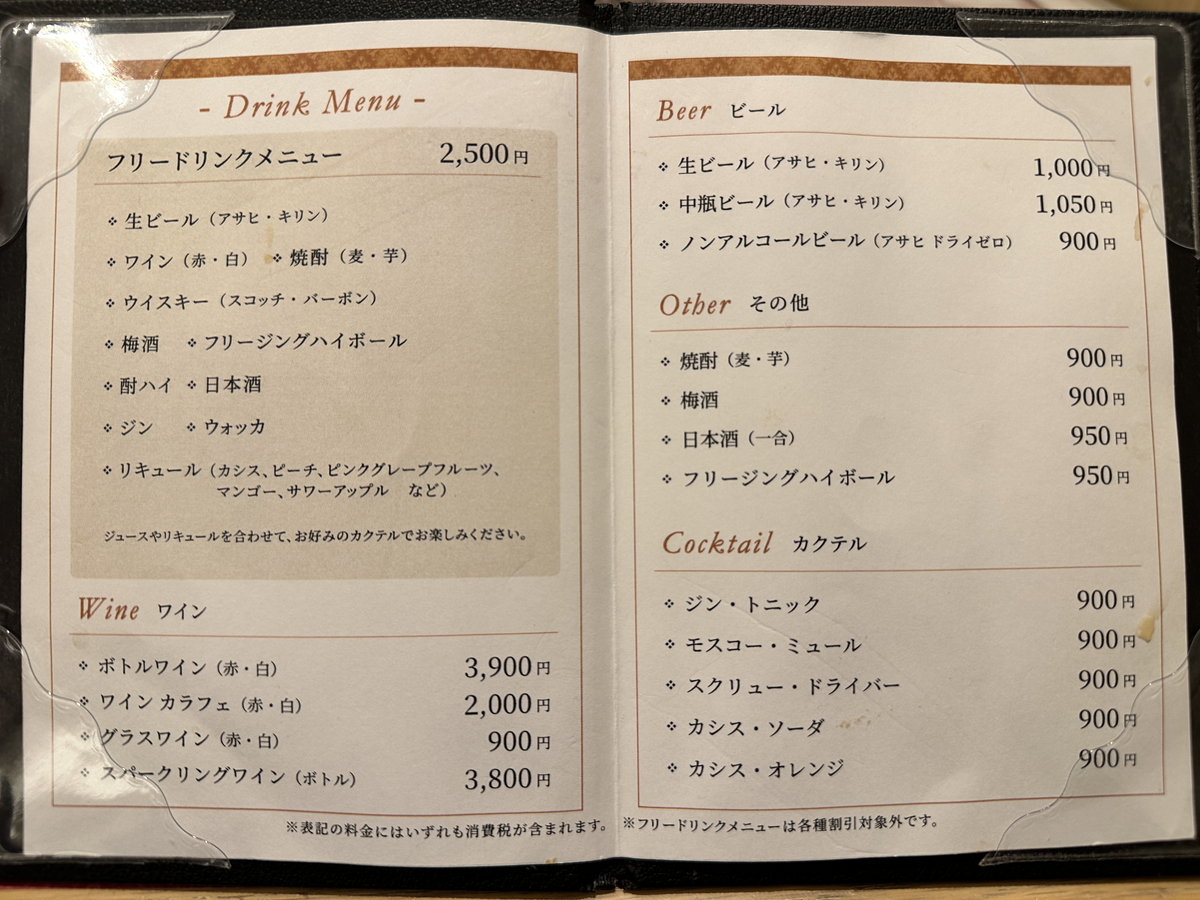 - Drink Menu -
フリードリンクメニュー 2,500円
生ビール（アサヒ・キリン）
ワイン（赤・白） 焼酎（麦・芋）
ウイスキー（スコッチ・バーボン）
梅酒 フリージングハイボール
酎ハイ 日本酒
ジン ウォッカ
リキュール（カシス、ピーチ、ピンクグレープフルーツ、
マンゴー、サワーアップル など）
ジュースやリキュールを合わせて、お好みのカクテルでお楽しみください。
Wine ワイン
ボトルワイン（赤・白） 3,900円
ワイン カラフェ（赤・白） 2,000円
グラスワイン（赤・白） 900円
スパークリングワイン（ボトル） 3,800円
※表記の料金にはいずれも消費税が含まれます。
Beer ビール
生ビール（アサヒ・キリン） 1,000円
中瓶ビール（アサヒ・キリン） 1,050円
ノンアルコールビール（アサヒ ドライゼロ） 900円
Other その他
焼酎（麦・芋） 900円
梅酒 900円
日本酒（一合） 950円
フリージングハイボール 950円
Cocktail カクテル
ジン・トニック 900円
モスコー・ミュール 900円
スクリュー・ドライバー 900円
カシス・ソーダ 900円
カシス・オレンジ 900円
※フリードリンクメニューは各種割引対象外です。